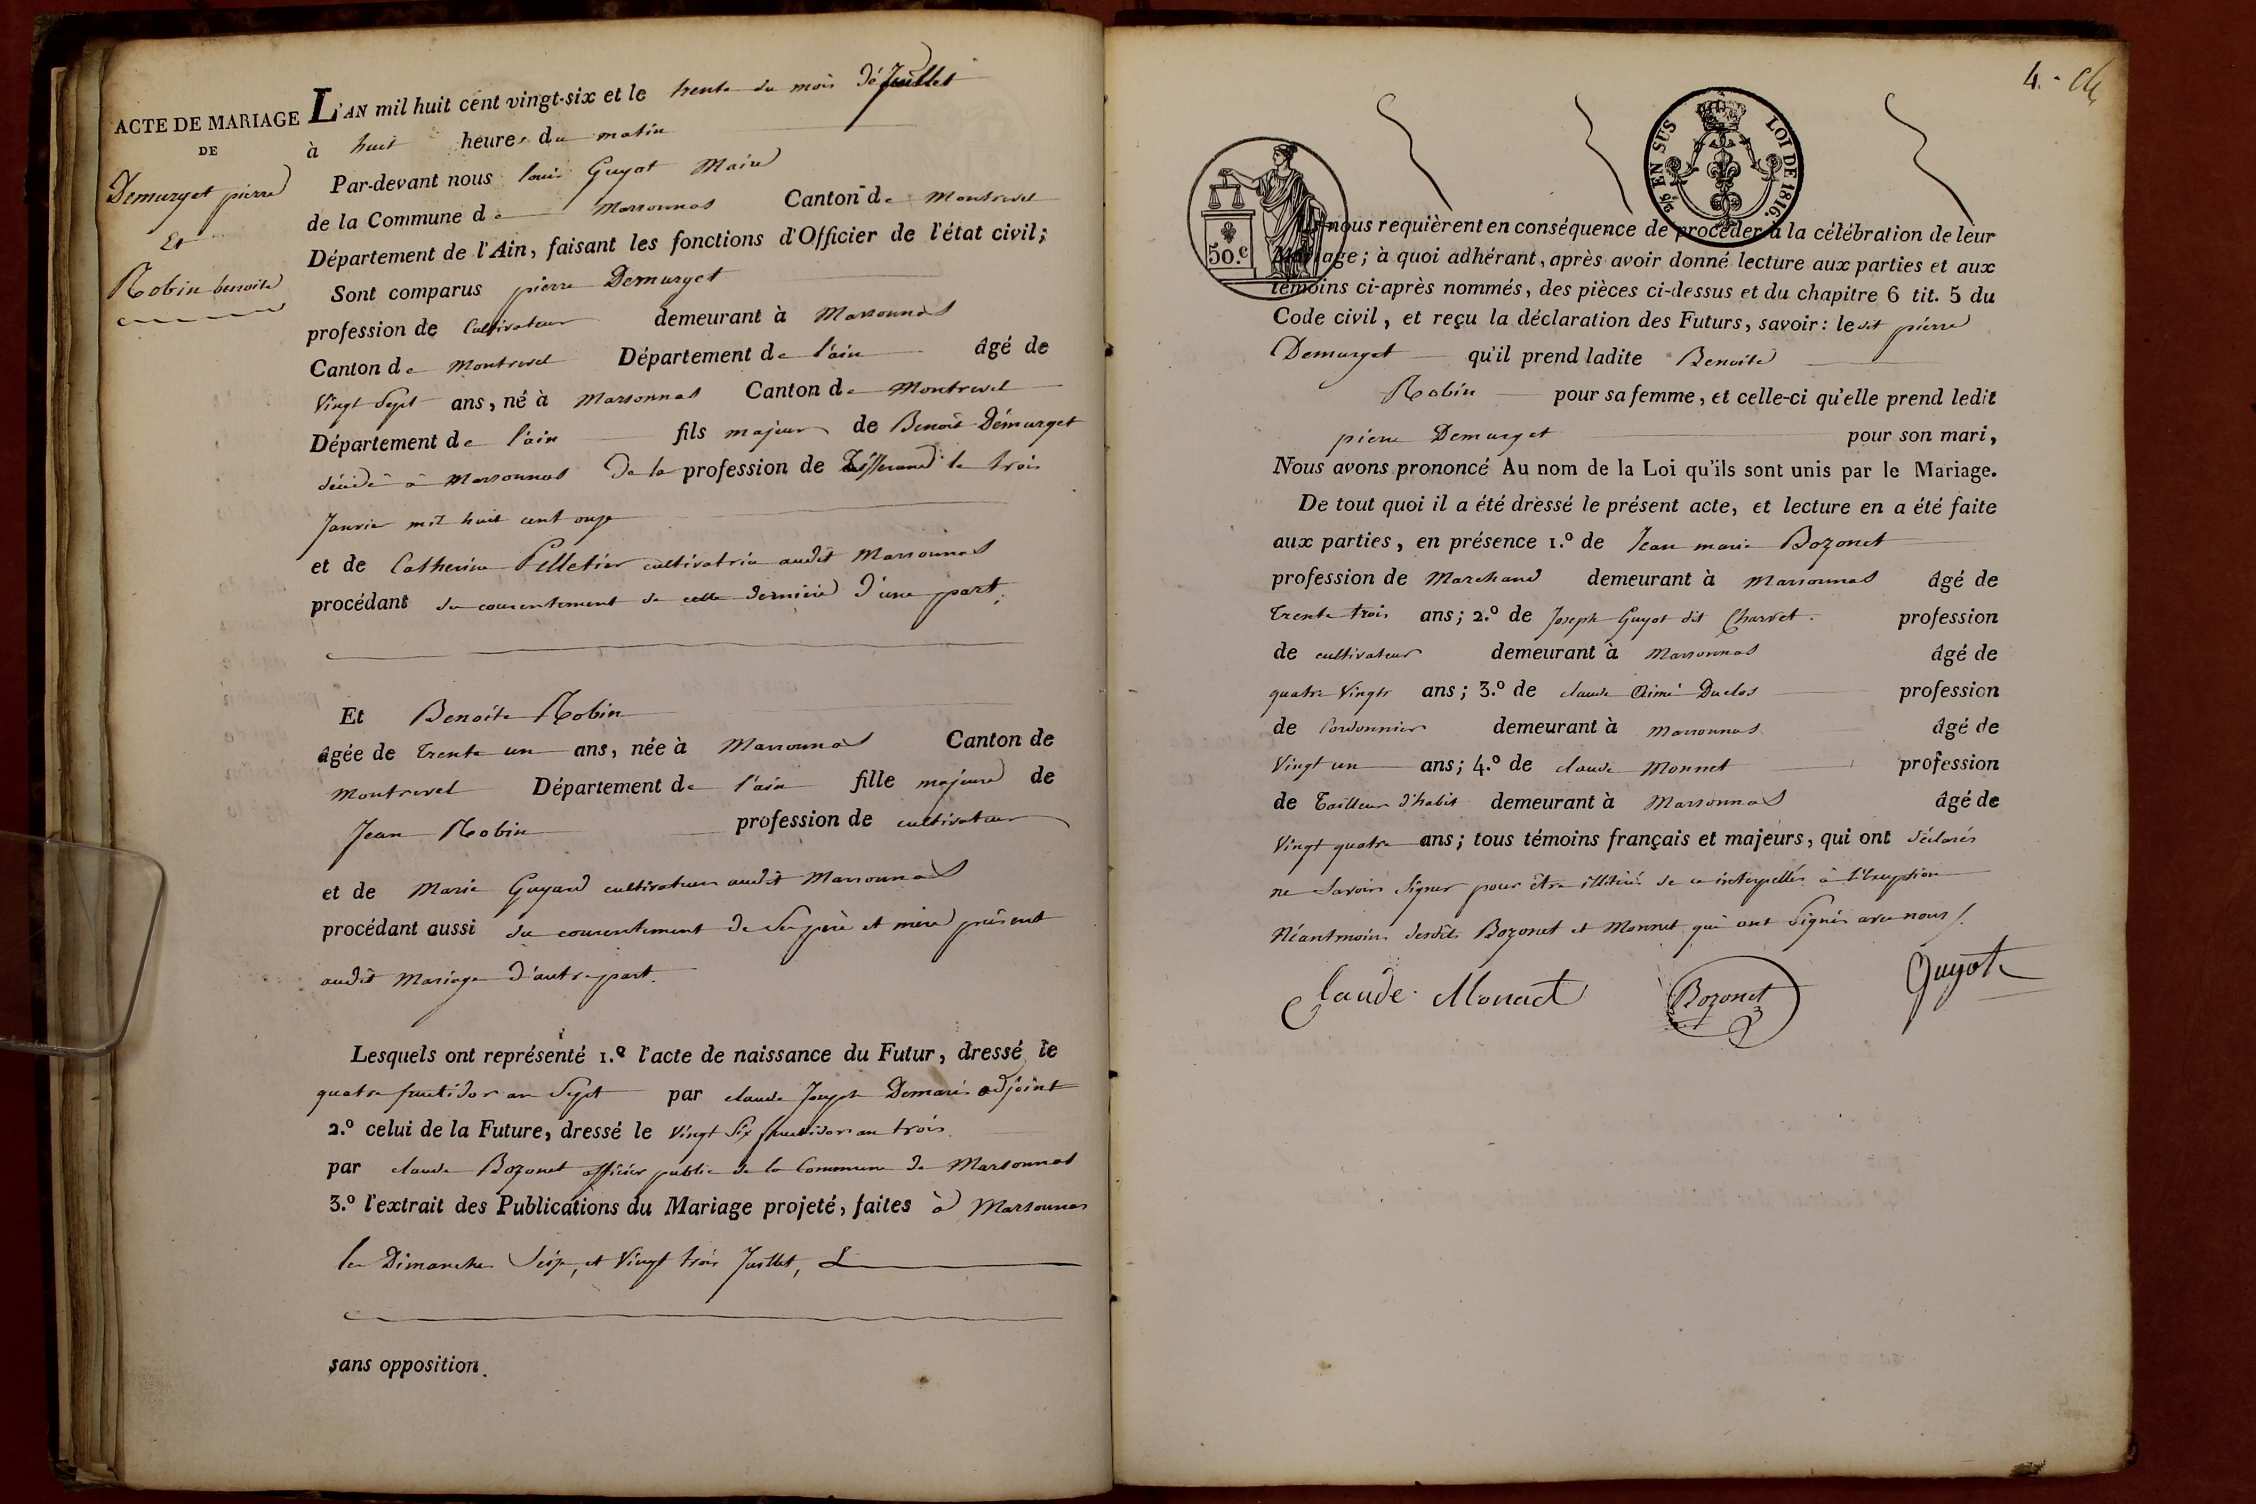 ACTE DE MARIAGE
DE
Demurget pierre
Et
Robin benoite
L'AN mil huit cent vingt-six et le trente du mois de Juillet
à huit heures du matin
Par-devant nous louis Guyot Maire
de la Commune de Marsonnas Canton de Montrevel
Département de l'Ain, faisant les fonctions d'Officier de l'état civil;
Sont comparus pierre Demurget
profession de Cultivateur demeurant à Marsonnas
Canton de Montrevel Département de l'ain âgé de
Vingt Sept ans, né à Marsonnas Canton de Montrevel
Département de l'ain fils majeur de Benoit Démurget
décédé à Marsonnas de la profession de Tisserand le trois
Janvier mil huit cent onze
et de Catherine Pelletier cultivatrice audit Marsonnas
procédant du consentement de cette dernière d'une part;
Et Benoite Robin
âgée de Trente un ans, née à Marsonnas Canton de
Montrevel Département de l'ain fille majeure de
Jean Robin profession de cultivateur
et de Marie Guyard cultivateurs audit Marsonnas
procédant aussi du consentement de Ses père et mère présent
audit Mariage d'autre part.
Lesquels ont représenté 1.º l'acte de naissance du Futur, dressé le
quatre fructidor an Sept par claude Joseph Demaris adjoint
2.º celui de la Future, dressé le Vingt Six fructidor an trois
par claude Bozonet officier public de la Commune de Marsonnas
3.º l'extrait des Publications du Mariage projeté, faites à Marsonnas
les Dimanches Seize, et Vingt trois Juillet,
sans opposition.
4.
50.C
25 EN SUS LOI DE 1816.
nous requièrent en conséquence de procéder à la célébration de leur
Mariage; à quoi adhérant, après avoir donné lecture aux parties et aux
témoins ci-après nommés, des pièces ci-dessus et du chapitre 6 tit. 5 du
Code civil, et reçu la déclaration des Futurs, savoir: ledit pierre
Demurget qu'il prend ladite Benoite
Robin pour sa femme, et celle-ci qu'elle prend ledit
pierre Demurget pour son mari,
Nous avons prononcé Au nom de la Loi qu'ils sont unis par le Mariage.
De tout quoi il a été dressé le présent acte, et lecture en a été faite
aux parties, en présence 1.º de Jean marie Bozonet
profession de Marchand demeurant à Marsonnas âgé de
Trente trois ans; 2.º de Joseph Guyot dit Charvet. profession
de cultivateur demeurant à Marsonnas âgé de
quatre Vingts ans; 3.º de claude Aimé Duclos profession
de Cordonnier demeurant à Marsonnas âgé de
Vingt un ans; 4.º de claude Monnet profession
de Tailleur d'habit demeurant à Marsonnas âgé de
Vingt quatre ans; tous témoins français et majeurs, qui ont déclarés
ne Savoir Signer pour être illitérés de ce interpellés à L'Exception
Néantmoins desdits Bozonet et Monnet qui ont Signés avec nous.
Claude Monnet Bozonet Guyot